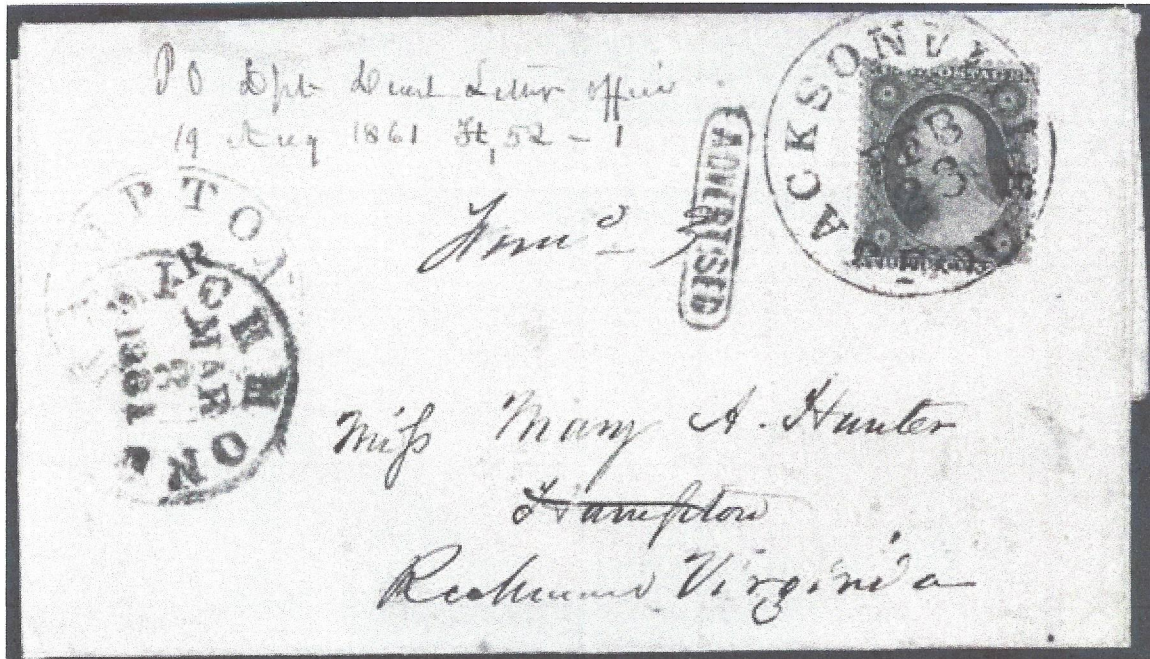 P O Dpt Dead Letter office
19 Aug 1861
JACKSONV
FEB
3
ADVERTISED
PTO
RICHMON
MAR
1861
Miſs Mary A. Hunter
Hampton
Richmond Virginia